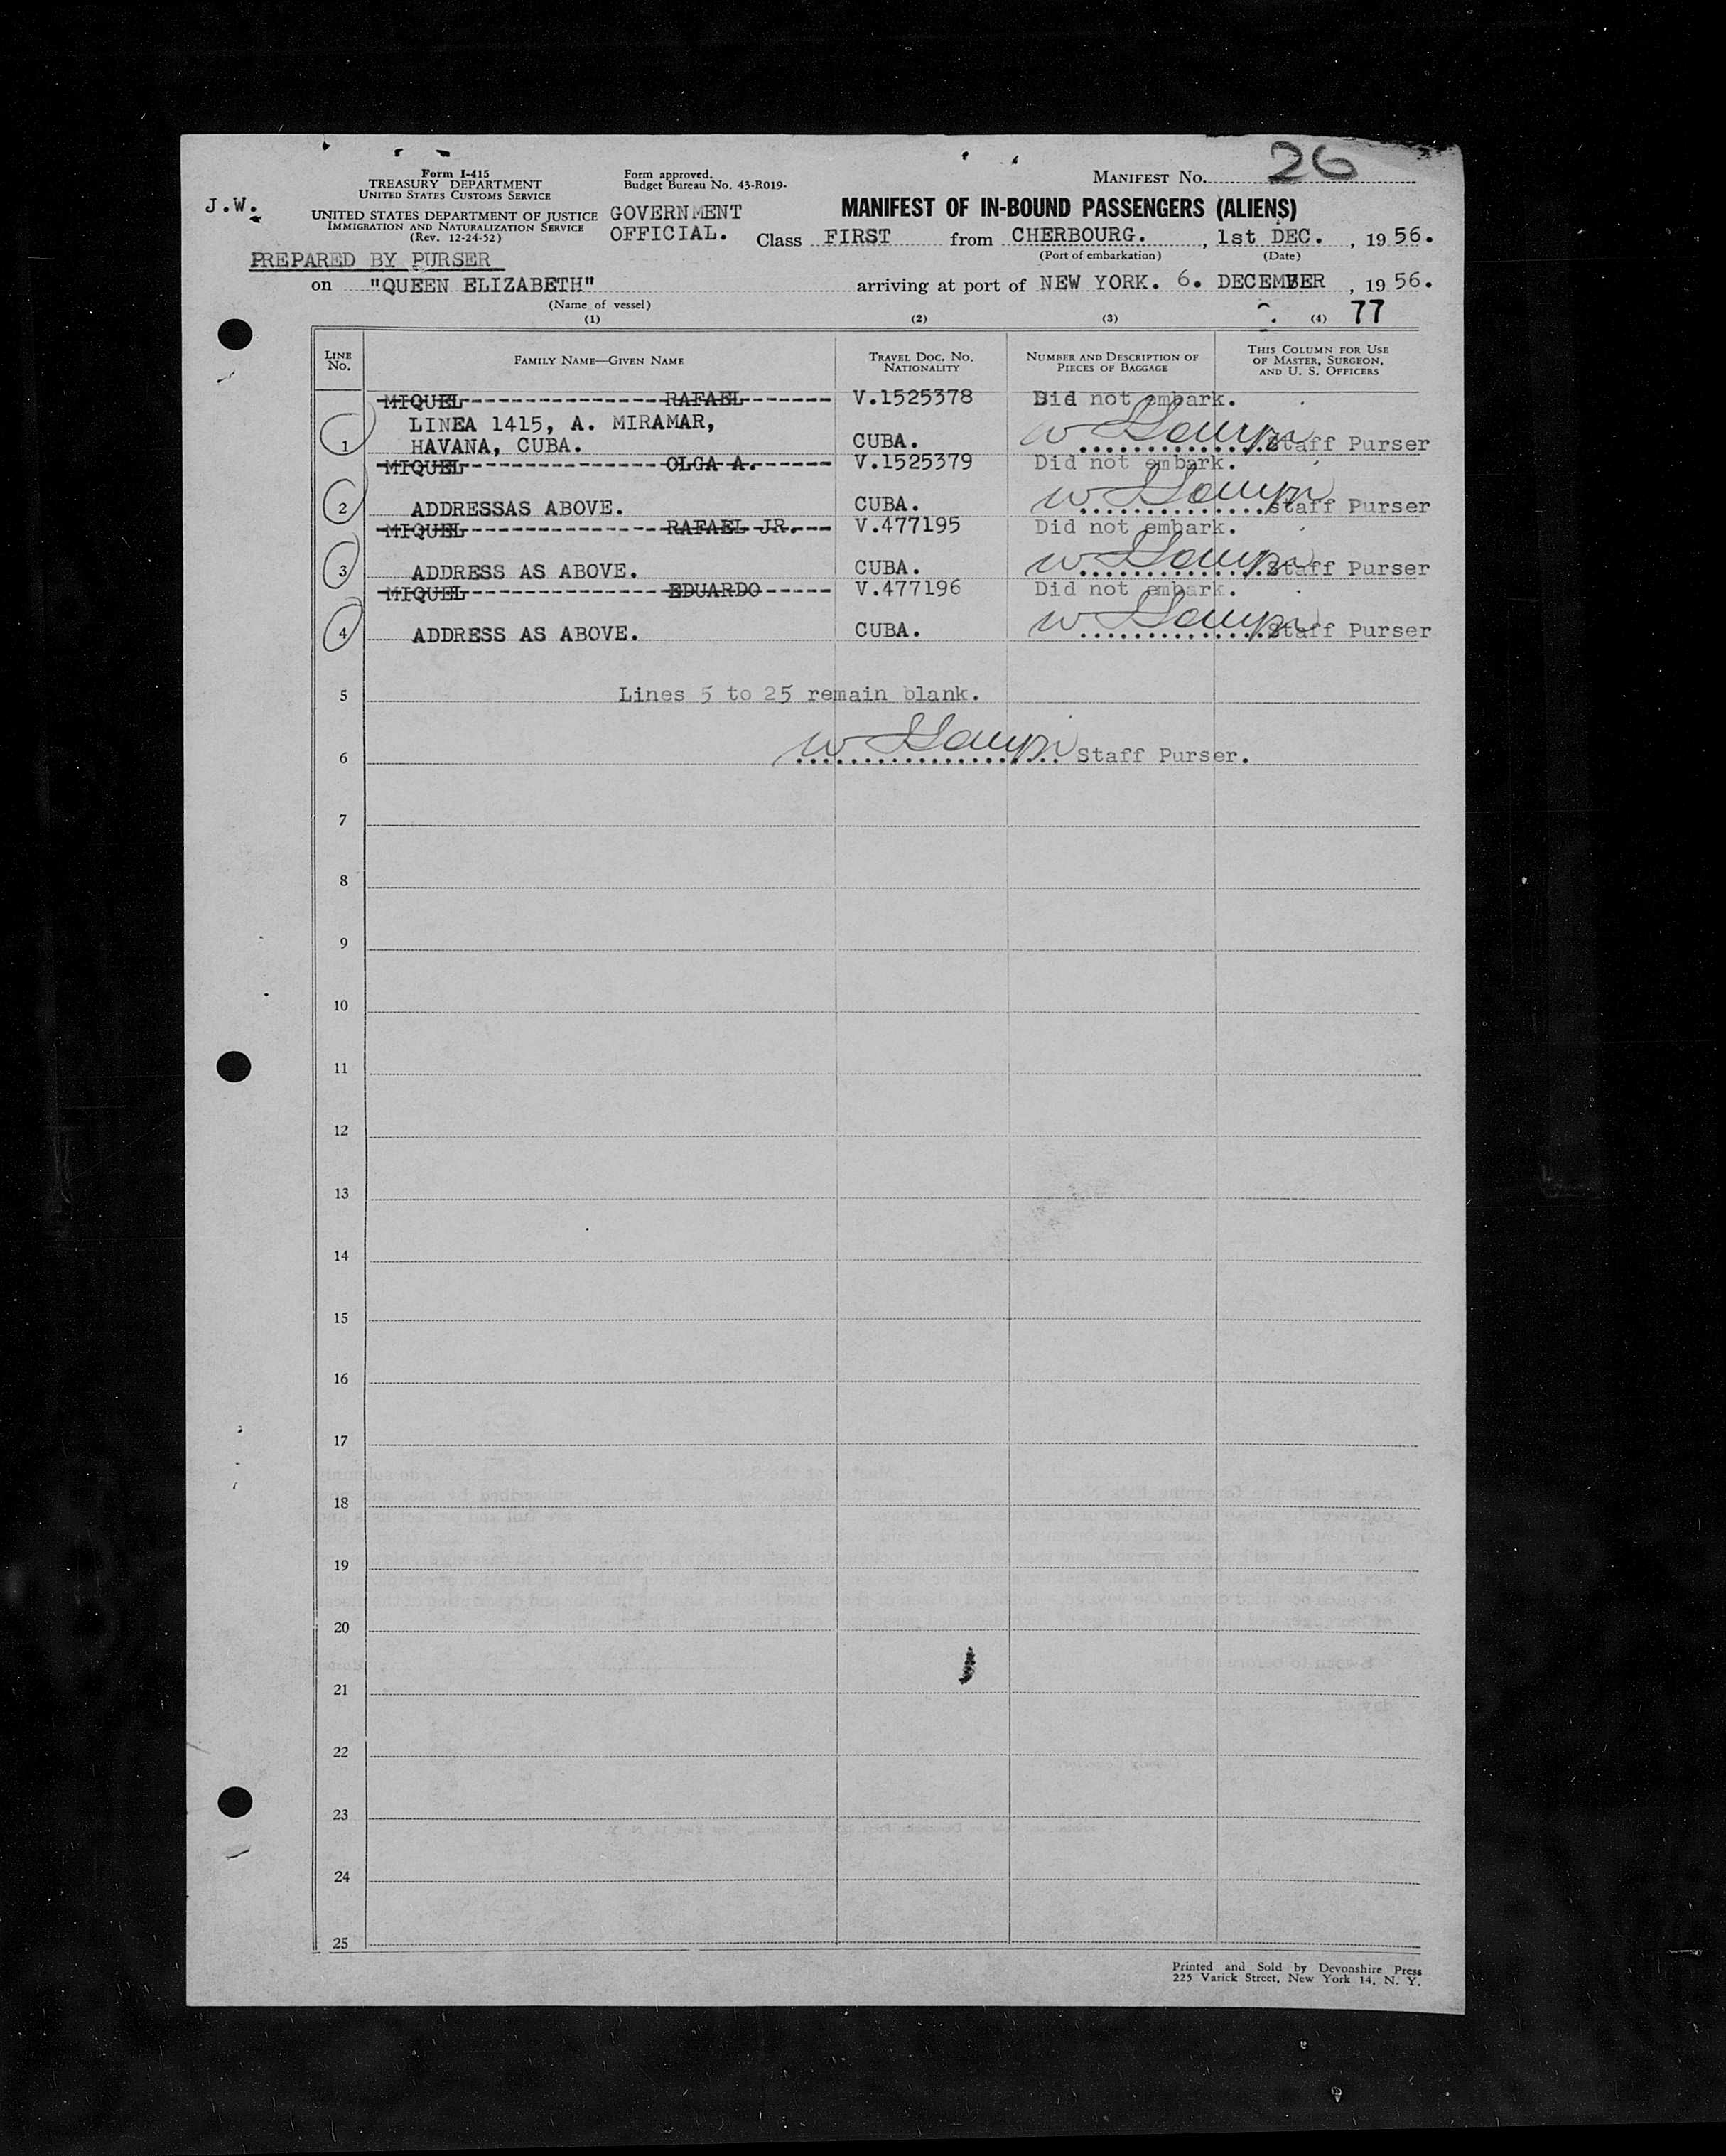 Form I-415
TREASURY DEPARTMENT
UNITED STATES CUSTOMS SERVICE
Form approved.
Budget Bureau No. 43-R019-
MANIFEST No. 26
J.W.
UNITED STATES DEPARTMENT OF JUSTICE
IMMIGRATION AND NATURALIZATION SERVICE
(Rev. 12-24-52)
GOVERNMENT
OFFICIAL.
MANIFEST OF IN-BOUND PASSENGERS (ALIENS)
Class FIRST from CHERBOURG. , 1st DEC. , 1956.
(Port of embarkation) (Date)
PREPARED BY PURSER
on "QUEEN ELIZABETH" arriving at port of NEW YORK. 6. DECEMBER , 1956.
(Name of vessel)
(1) (2) (3) (4) 77
LINE No. FAMILY NAME—GIVEN NAME TRAVEL DOC. No. NATIONALITY NUMBER AND DESCRIPTION OF PIECES OF BAGGAGE THIS COLUMN FOR USE OF MASTER, SURGEON, AND U. S. OFFICERS
MIQUEL--------------------RAFAEL------- V.1525378 Did not embark.
LINEA 1415, A. MIRAMAR,
1 HAVANA, CUBA. CUBA. Staff Purser
MIQUEL--------------------OLGA A.------ V.1525379 Did not embark.
2 ADDRESSAS ABOVE. CUBA. Staff Purser
MIQUEL--------------------RAFAEL JR.--- V.477195 Did not embark.
3 ADDRESS AS ABOVE. CUBA. Staff Purser
MIQUEL--------------------EDUARDO----- V.477196 Did not embark.
4 ADDRESS AS ABOVE. CUBA. Staff Purser
5 Lines 5 to 25 remain blank.
6 Staff Purser.
7
8
9
10
11
12
13
14
15
16
17
18
19
20
21
22
23
24
25
Printed and Sold by Devonshire Press
225 Varick Street, New York 14, N. Y.